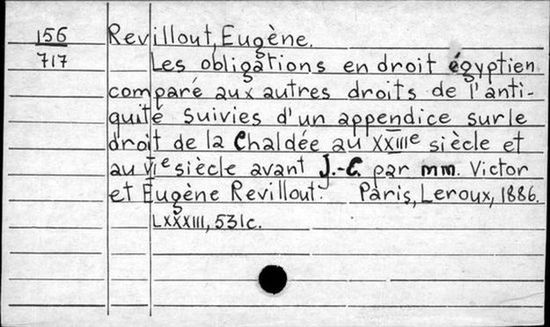 156 Revillout, Eugène.
717 Les obligations en droit égyptien
comparé aux autres droits de l'anti-
quité suivies d'un appendice sur le
droit de la Chaldée au XXIIIe siècle et
au VIe siècle avant J.-C. par mm. Victor
et Eugène Revillout. Paris, Leroux, 1886.
LXXXIII, 531c.